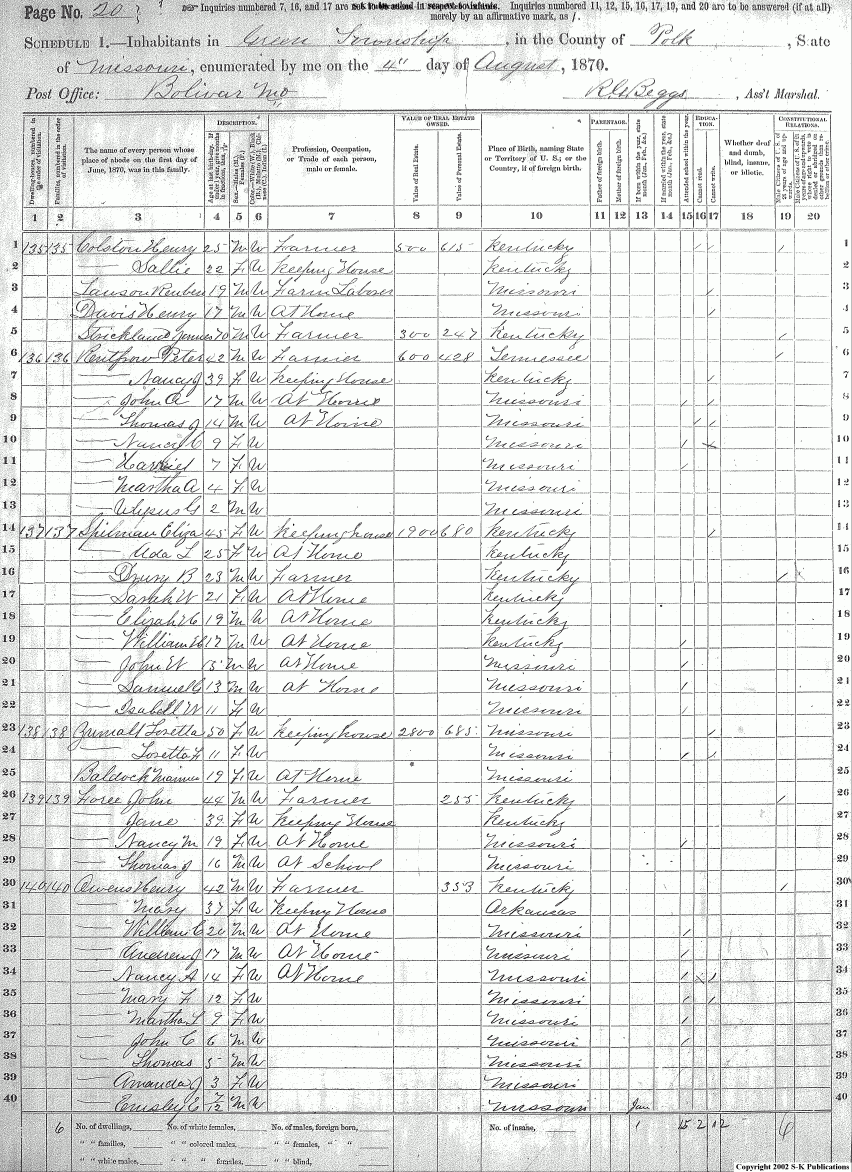 Page No. 20
Inquiries numbered 7, 16, and 17 are not to be asked in respect to infants. Inquiries numbered 11, 12, 15, 16, 17, 19, and 20 are to be answered (if at all)
merely by an affirmative mark, as /.
SCHEDULE 1.—Inhabitants in Green Township, in the County of Polk, State
of Missouri, enumerated by me on the 4" day of August, 1870.
Post Office: Bolivar Mo R. G. Beggs, Ass't Marshal.
DESCRIPTION. VALUE OF REAL ESTATE OWNED. PARENTAGE. EDUCATION. CONSTITUTIONAL RELATIONS.
Dwelling-houses, numbered in the order of visitation. Families, numbered in the order of visitation. The name of every person whose place of abode on the first day of June, 1870, was in this family. Profession, Occupation, or Trade of each person, male or female. Value of Real Estate. Value of Personal Estate. Place of Birth, naming State or Territory of U. S.; or the Country, if of foreign birth. Father of foreign birth. Mother of foreign birth. Attended school within the year. Cannot read. Cannot write. Whether deaf and dumb, blind, insane, or idiotic.
1 2 3 4 5 6 7 8 9 10 11 12 13 14 15 16 17 18 19 20
1 135 135 Colston Henry 25 M W Farmer 500 615 Kentucky / / / 1
2 — Sallie 22 F W Keeping House Kentucky 2
3 Lawson Reuben 19 M W Farm Laborer Missouri / 3
4 Davis Henry 17 M W At Home Missouri / 4
5 Strickland James 70 M W Farmer 300 247 Kentucky / 5
6 136 136 Rentfrow Peter 42 M W Farmer 600 428 Tennessee / 6
7 Nancy J 39 F W Keeping House Kentucky / 7
8 — John A 17 M W At Home Missouri / / 8
9 — Thomas J 14 M W At Home Missouri / / 9
10 — Nancy C 9 F W Missouri / 10
11 — Harriet 7 F W Missouri / 11
12 — Martha A 4 F W Missouri 12
13 — Ulysus G 2 M W Missouri 13
14 137 137 Spilman Eliza 45 F W Keeping house 1900 680 Kentucky / 14
15 — Uda L 25 F W At Home Kentucky 15
16 — Drury B 23 M W Farmer Kentucky / 16
17 — Sarah W 21 F W At Home Kentucky 17
18 — Elizah C 19 M W At Home Kentucky 18
19 — William H 17 M W At Home Kentucky / 19
20 — John W 15 M W At Home Missouri / 20
21 — Samuel G 13 M W at Home Missouri / 21
22 — Isabell W 11 F W Missouri / 22
23 138 138 Zumalt Losetta 50 F W Keeping house 2800 685 Missouri / 23
24 — Losetta F 11 F W Missouri / / 24
25 Baldock 19 F W At Home Missouri 25
26 139 139 Foree John 44 M W Farmer 255 Kentucky / 26
27 — Jane 39 F W Keeping House Kentucky 27
28 — Nancy M 19 F W At Home Missouri / 28
29 — Thomas J 16 M W At School Missouri 29
30 140 140 Owens Henry 42 M W Farmer 353 Kentucky / 30
31 — Mary 37 F W Keeping House Arkansas 31
32 — William C 20 M W At Home Missouri / 32
33 — Andrew J 17 M W At Home Missouri / 33
34 — Nancy A 14 F W At Home Missouri / / 34
35 — Mary F 12 F W Missouri / / 35
36 — Martha L 9 F W Missouri / 36
37 — John C 6 M W Missouri / 37
38 — Thomas 5 M W Missouri 38
39 — Amanda J 3 F W Missouri 39
40 — Emsley E 7/12 M W Missouri Jan 40
6 No. of dwellings, No. of white females, No. of males, foreign born, No. of insane, 1 15 2 12 6
" " families, " " colored males, " " females, " "
" " white males, " " females, " " blind,
Copyright 2002 S-K Publications